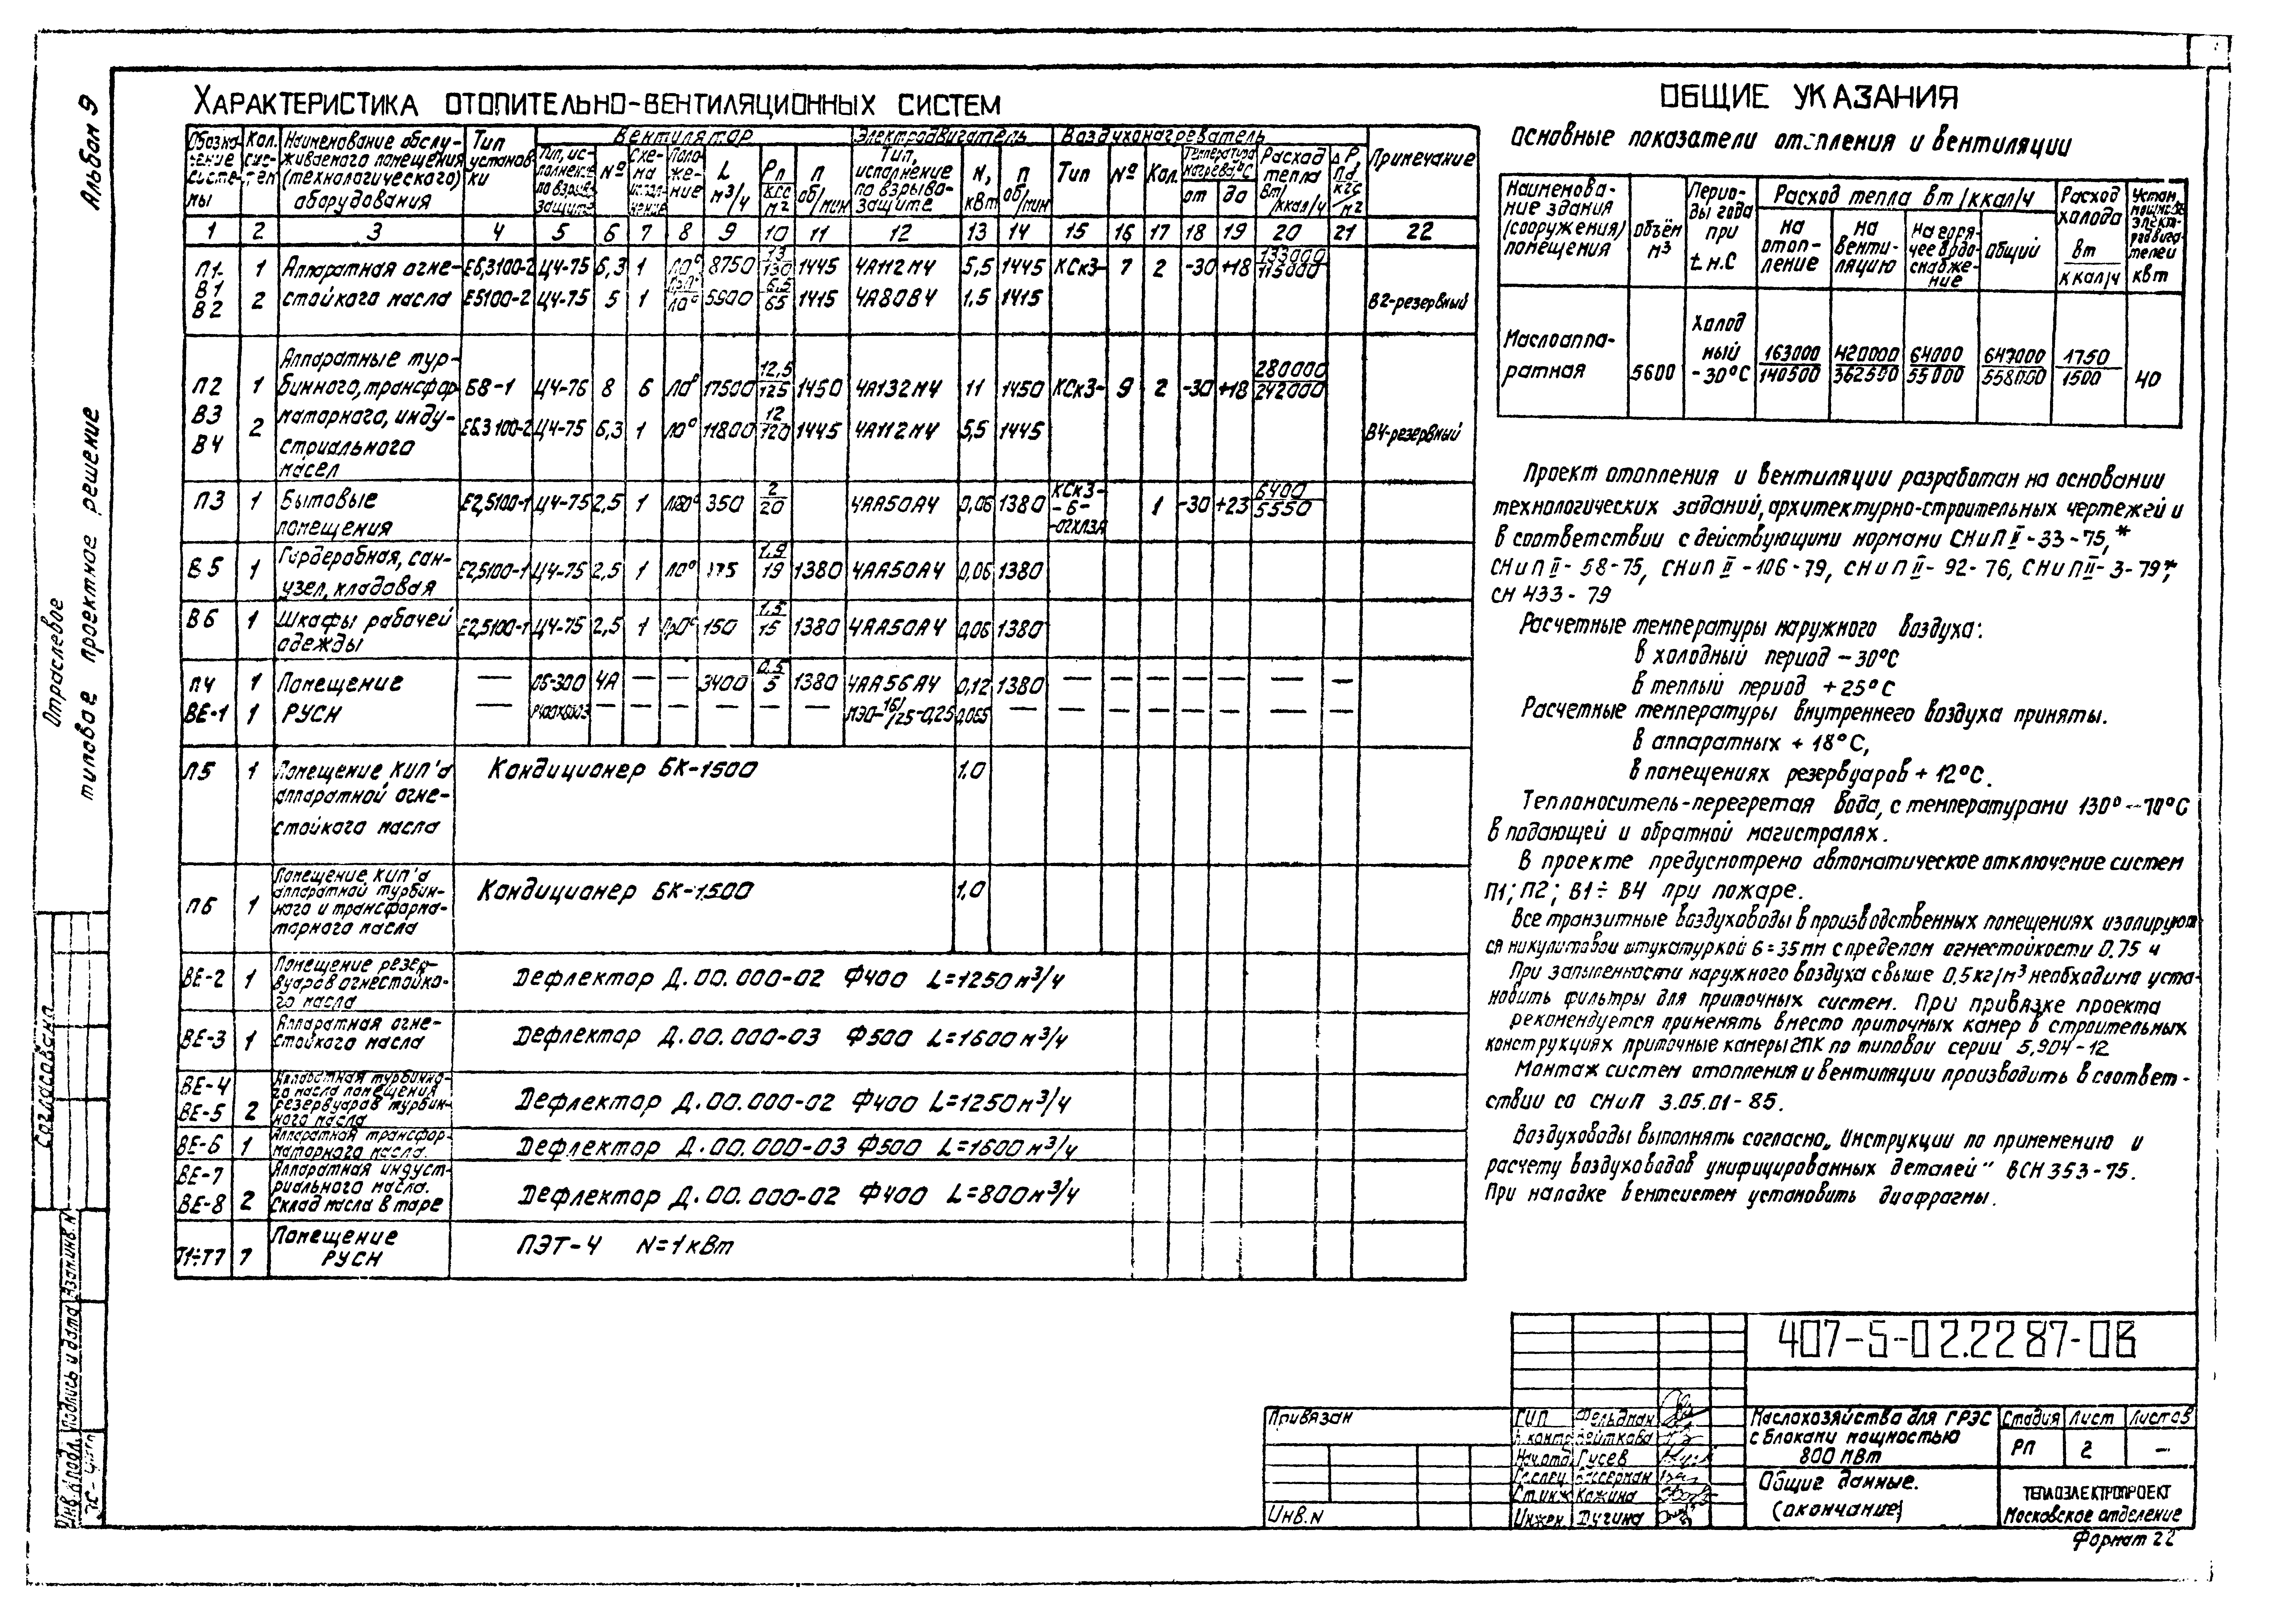 Альбом 9
Отраслевое
типовое проектное решение
Характеристика отопительно-вентиляционных систем
Обозна-чение систе-мы | Кол. сис-тем | Наименование обслу-живаемого помещения (технологического) оборудования | Тип установ-ки | Вентилятор | Электродвигатель | Воздухонагреватель | Примечание
Тип, ис-полнение по взрыво-защите | № | Схе-ма исполнения | Поло-же-ние | L м³/ч | Рп кгс/м² | п об/мин | Тип, исполнение по взрыво-защите | N, кВт | п об/мин | Тип | № | Кол. | Температура нагрева, °С от до | Расход тепла Вт/ккал/ч | ΔР, Па кгс/м²
1 2 3 4 5 6 7 8 9 10 11 12 13 14 15 16 17 18 19 20 21 22
П1 1 Аппаратная огне- Е6,3100-2 Ц4-75 6,3 1 Л0° 8750 13/130 1445 4А112М4 5,5 1445 КСк3- 7 2 -30 +18 133000/115000
В1 В2 2 стойкого масла Е5100-2 Ц4-75 5 1 Л0° 5900 6,5/65 1415 4А80В4 1,5 1415 В2-резервный
Аппаратные тур-
П2 1 бинного, трансфор Б8-1 Ц4-76 8 6 Л0° 17500 12,5/125 1450 4А132М4 11 1450 КСк3- 9 2 -30 +18 280000/242000
В3 В4 2 маторного, инду- Е6,3100-2 Ц4-75 6,3 1 Л0° 11800 12/120 1445 4А112М4 5,5 1445 В4-резервный
стриального
масел
П3 1 Бытовые помещения Е2,5100-1 Ц4-75 2,5 1 350 2/20 4АА50А4 0,06 1380 КСк3- -6- -02ХЛ3А 1 -30 +23 6400/5550
В5 1 Гардеробная, сан-узел, кладовая Е2,5100-1 Ц4-75 2,5 1 Л0° 1,9/19 1380 4АА50А4 0,06 1380
В6 1 Шкафы рабочей одежды Е2,5100-1 Ц4-75 2,5 1 Пр0° 150 1,5/15 1380 4АА50А4 0,06 1380
П4 1 Помещение — 06-300 4А — — 3400 0,5/5 1380 4АА56А4 0,12 1380 — — — — — — —
ВЕ-1 1 РУСН — — — — — — — МЭО-16/25-0,25 — — — — — — — —
П5 1 Помещение КИП'а Кондиционер БК-1500 1,0
аппаратной огне-
стойкого масла
П6 1 Помещение КИП'а аппаратной турбин-ного и трансформа-торного масла Кондиционер БК-1500 1,0
ВЕ-2 1 Помещение резер-вуаров огнестойко-го масла Дефлектор Д.00.000-02 Ф400 L=1250 м³/ч
ВЕ-3 1 Аппаратная огне-стойкого масла Дефлектор Д.00.000-03 Ф500 L=1600 м³/ч
ВЕ-4 ВЕ-5 2 Аппаратная турбинно-го масла помещения резервуаров турбин-ного масла Дефлектор Д.00.000-02 Ф400 L=1250 м³/ч
ВЕ-6 1 Аппаратная трансфор-маторного масла. Дефлектор Д.00.000-03 Ф500 L=1600 м³/ч
ВЕ-7 ВЕ-8 2 Аппаратная индуст-риального масла. Склад масла в таре Дефлектор Д.00.000-02 Ф400 L=800 м³/ч
Т1÷Т7 7 Помещение РУСН ПЭТ-4 N=1кВт
Общие указания
Основные показатели отопления и вентиляции
Наименова-ние здания (сооружения) помещения | Объём м³ | Перио-ды года при t.н.С | Расход тепла вт/ккал/ч | Расход холода вт/ккал/ч | Устан. мощность электродвигателей квт
на отоп-ление | на венти-ляцию | На горя-чее водо-снабже-ние | Общий
Маслоаппа-ратная 5600 Холод ный -30°С 163000/140500 420000/362500 64000/55000 647000/558000 1750/1500 40
Проект отопления и вентиляции разработан на основании
технологических заданий, архитектурно-строительных чертежей и
в соответствии с действующими нормами СНиП II-33-75,*
СНиП II-58-75, СНиП II-106-79, СНиП II-92-76, СНиП II-3-79*,
СН 433-79
Расчетные температуры наружного воздуха:
в холодный период -30°С
в теплый период +25°С
Расчетные температуры внутреннего воздуха приняты.
в аппаратных + 18°С,
в помещениях резервуаров + 12°С.
Теплоноситель-перегретая вода, с температурами 130°--70°С
в подающей и обратной магистралях.
В проекте предусмотрено автоматическое отключение систем
П1; П2; В1÷В4 при пожаре.
Все транзитные воздуховоды в производственных помещениях изолируют
ся никулитовой штукатуркой б=35мм с пределом огнестойкости 0.75 ч
При запыленности наружного воздуха свыше 0,5кг/м³ необходимо уста-
новить фильтры для приточных систем. При привязке проекта
рекомендуется применять вместо приточных камер в строительных
конструкциях приточные камеры 2ПК по типовой серии 5.904-12
Монтаж систем отопления и вентиляции производить в соответ-
ствии со СНиП 3.05.01-85.
Воздуховоды выполнять согласно „Инструкции по применению и
расчету воздуховодов унифицированных деталей" ВСН 353-75.
При наладке вентсистем установить диафрагмы.
Согласовано
Взам.инв.N
Подпись и дата
Инв.N подл.
Привязан
Инв.N
407-5-02.22 87-ОВ
ГИП Фельдман
Н.контр Вейткова
Нач.отд. Гусев
Гл.спец. Вассерман
Ст.инж Кожина
Инжен. Дугина
Маслохозяйства для ГРЭС
с блоками мощностью
800 МВт
Стадия Лист Листов
РП 2 —
Общие данные.
(окончание)
ТЕПЛОЭЛЕКТРОПРОЕКТ
Московское отделение
Формат 22